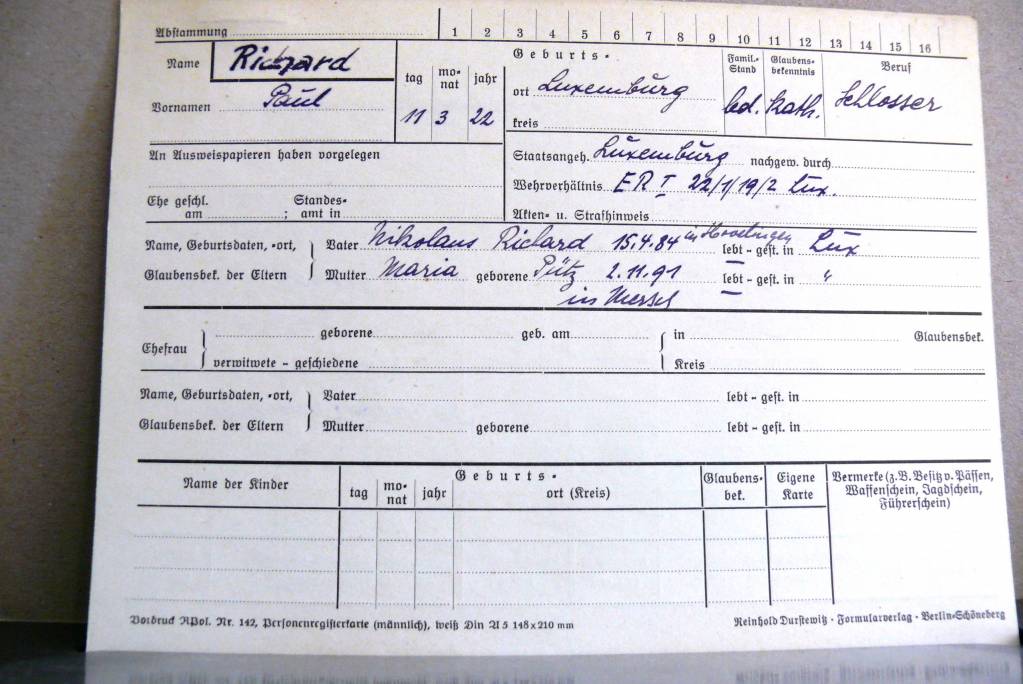 Abstammung 1 2 3 4 5 6 7 8 9 10 11 12 13 14 15 16
Name Richard
Vornamen Paul
tag monat jahr
11 3 22
Geburts-
ort Luxemburg
kreis
Famil.-Stand
led.
Glaubensbekenntnis
kath.
Beruf
Schlosser
An Ausweispapieren haben vorgelegen
Staatsangeh. Luxemburg nachgew. durch
Wehrverhältnis ER I 22/1/19/2 Lux.
Ehe geschl. am ; Standesamt in
Akten- u. Strafhinweis
Name, Geburtsdaten, -ort, Vater Nikolaus Richard 15.4.84 in lebt - gest. in Lux
Glaubensbek. der Eltern Mutter Maria geborene Pütz 2.11.91 lebt - gest. in "
in Mersch
Ehefrau geborene geb. am in Glaubensbek.
verwitwete - geschiedene Kreis
Name, Geburtsdaten, -ort, Vater lebt - gest. in
Glaubensbek. der Eltern Mutter geborene lebt - gest. in
Name der Kinder
tag monat jahr
Geburts-
ort (Kreis)
Glaubensbek.
Eigene Karte
Vermerke (z. B. Besitz v. Pässen,
Waffenschein, Jagdschein,
Führerschein)
Vordruck RPol. Nr. 142, Personenregisterkarte (männlich), weiß Din A 5 148 x 210 mm
Reinhold Durstewitz · Formularverlag · Berlin-Schöneberg